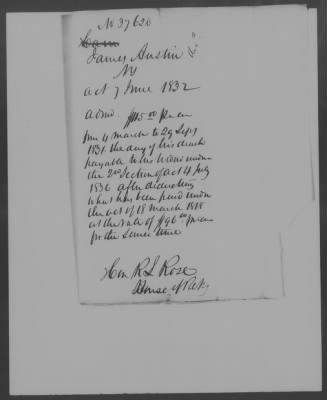 No 37620
James Austin
NY
Act 7 June 1832
$115.00 per an
from 4 March to 29 Sept
1831 the day of his death
payable to his heirs under
the 2nd Section of act 4 July
1836 after deducting
what has been paid under
the act of 18 March 1818
at the rate of $96.00 per an
for the same time
Hon R L Rose
House of Reps